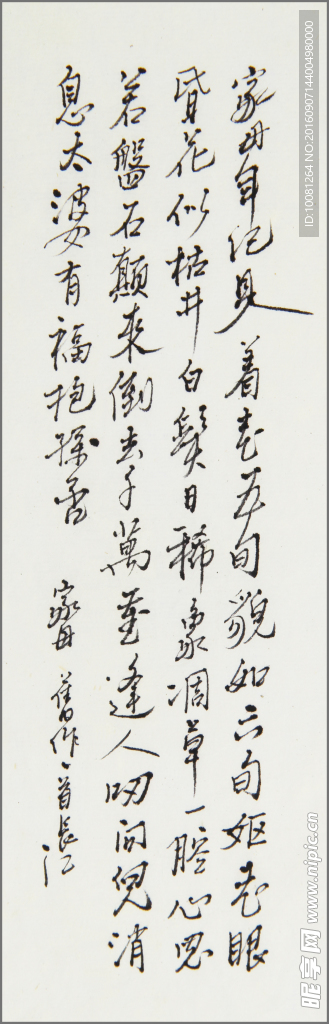 家母年纪见着老五旬貌如六旬妪老眼
昏花似枯井白鬓日稀象凋草一腔心思
若盤石颠来倒去千萬鱼逢人叨问儿消
息太婆有福抱孫否
家母舊作一首長江
ID:10081264 NO:20160907144004980000
昵享网 www.nipic.cn